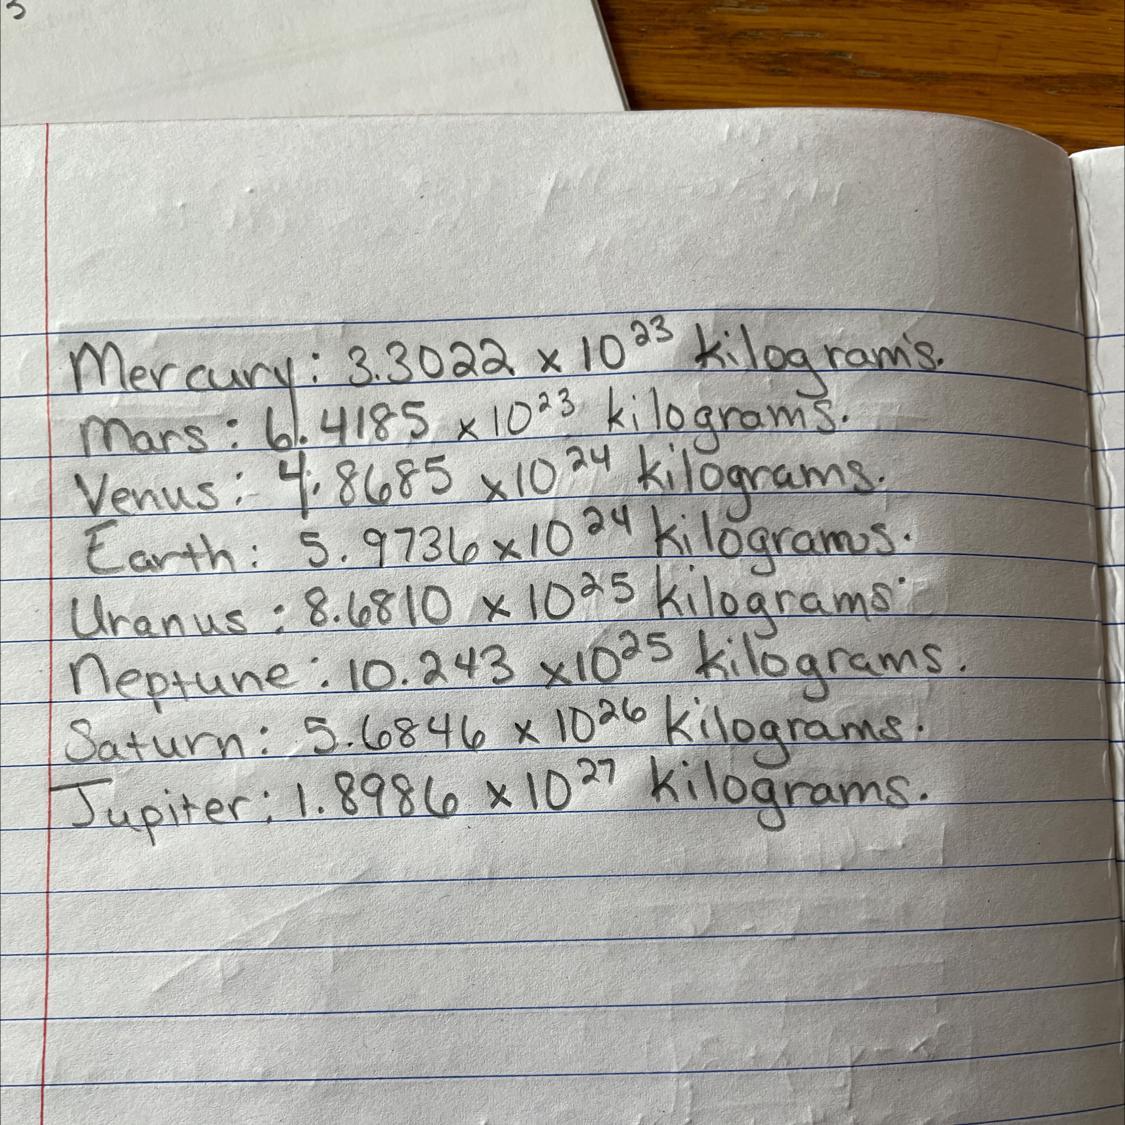 Mercury: 3.3022 x 10²³ kilograms.
Mars: 6.4185 x 10²³ kilograms.
Venus: 4.8685 x 10²⁴ kilograms.
Earth: 5.9736 x 10²⁴ kilograms.
Uranus: 8.6810 x 10²⁵ kilograms.
Neptune: 10.243 x 10²⁵ kilograms.
Saturn: 5.6846 x 10²⁶ kilograms.
Jupiter: 1.8986 x 10²⁷ kilograms.